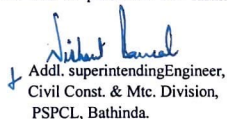 Nishant Bansal
Addl. superintendingEngineer,
Civil Const. & Mtc. Division,
PSPCL, Bathinda.